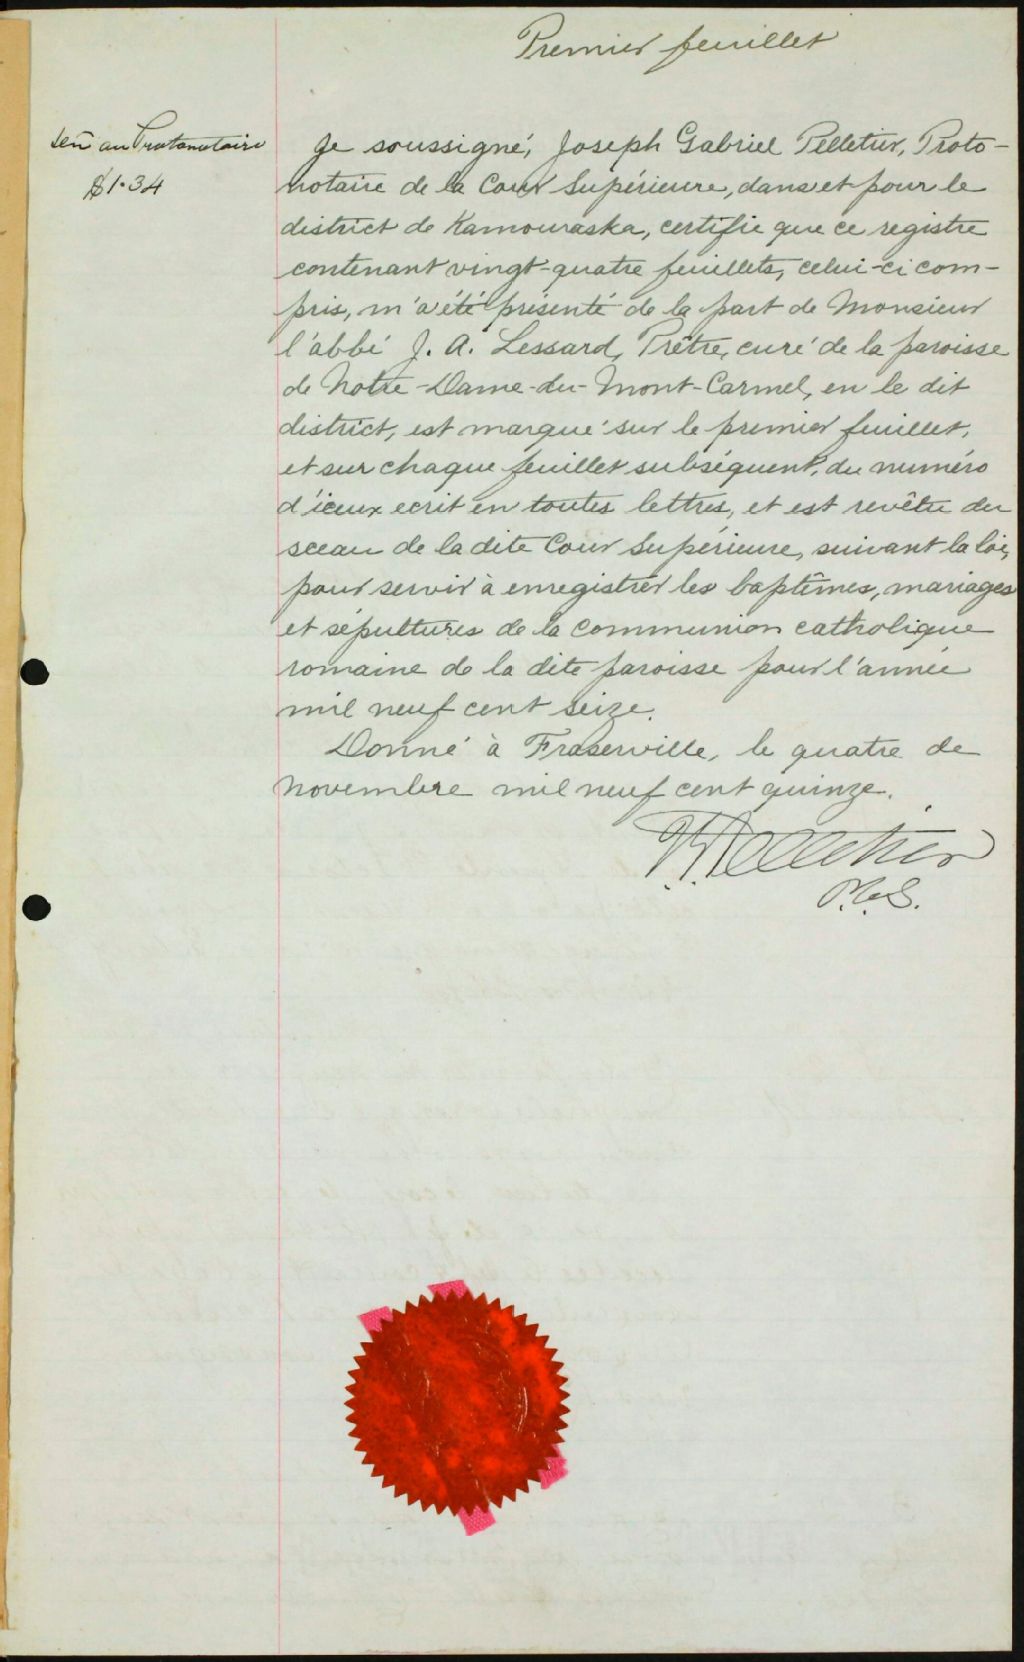 Premier feuillet
au Protonotaire
$1.34
Je soussigné, Joseph Gabriel Pelletier, Proto-
notaire de la Cour Supérieure, dans et pour le
district de Kamouraska, certifie que ce registre
contenant vingt-quatre feuillets, celui-ci com-
pris, m'a été présenté de la part de Monsieur
l'abbé J. A. Lessard, Prêtre, curé de la paroisse
de Notre-Dame-du-Mont-Carmel, en le dit
district, est marqué sur le premier feuillet,
et sur chaque feuillet subséquent, du numéro
d'iceux ecrit en toutes lettres, et est revêtu du
sceau de la dite Cour Supérieure, suivant la loi,
pour servir à enregistrer les baptêmes, mariages
et sépultures de la communion catholique
romaine de la dite paroisse pour l'année
mil neuf cent seize.
Donné à Fraserville, le quatre de
novembre mil neuf cent quinze.
Pelletier
P.C.S.